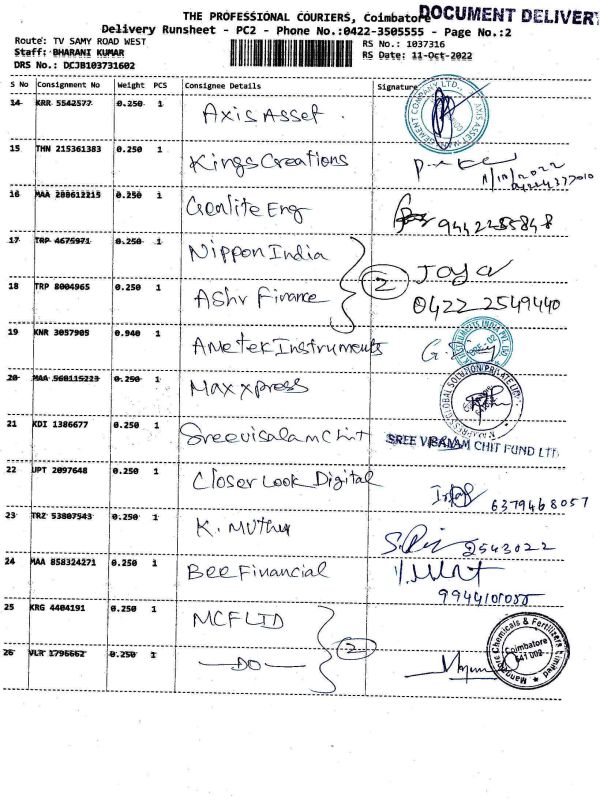 THE PROFESSIONAL COURIERS, Coimbatore
DOCUMENT DELIVERY
Delivery Runsheet - PC2 - Phone No.:0422-3505555 - Page No.:2
Route: TV SAMY ROAD WEST
RS No.: 1037316
Staff: BHARANI KUMAR
RS Date: 11-Oct-2022
DRS No.: DCJB103731602
S No Consignment No Weight PCS Consignee Details Signature
14 KRR 5542577 0.250 1 Axis Asset
15 THN 215361383 0.250 1 Kings Creations
16 MAA 288612215 0.250 1 Genlite Eng
17 TRP 4675971 0.250 1 Nippon India
2 Jaya
18 TRP 8004965 0.250 1 Ashv Finance 0422 2549440
19 KNR 3057905 0.940 1 Ametek Instruments
20 MAA 560115223 0.250 1 Maxxpress
21 KDI 1386677 0.250 1 Sreevisalam Chit SREE VISALAM CHIT FUND LTD.
22 UPT 2097648 0.250 1 Closer Look Digital 6379468057
23 TRZ 53807543 0.250 1 K. Muthu 2543022
24 MAA 858324271 0.250 1 Bee Financial
25 KRG 4404191 0.250 1 MCF LTD
2
26 VLR 1796662 0.250 1 DO
Mangalore Chemicals & Fertilizers Limited
Coimbatore
641 002